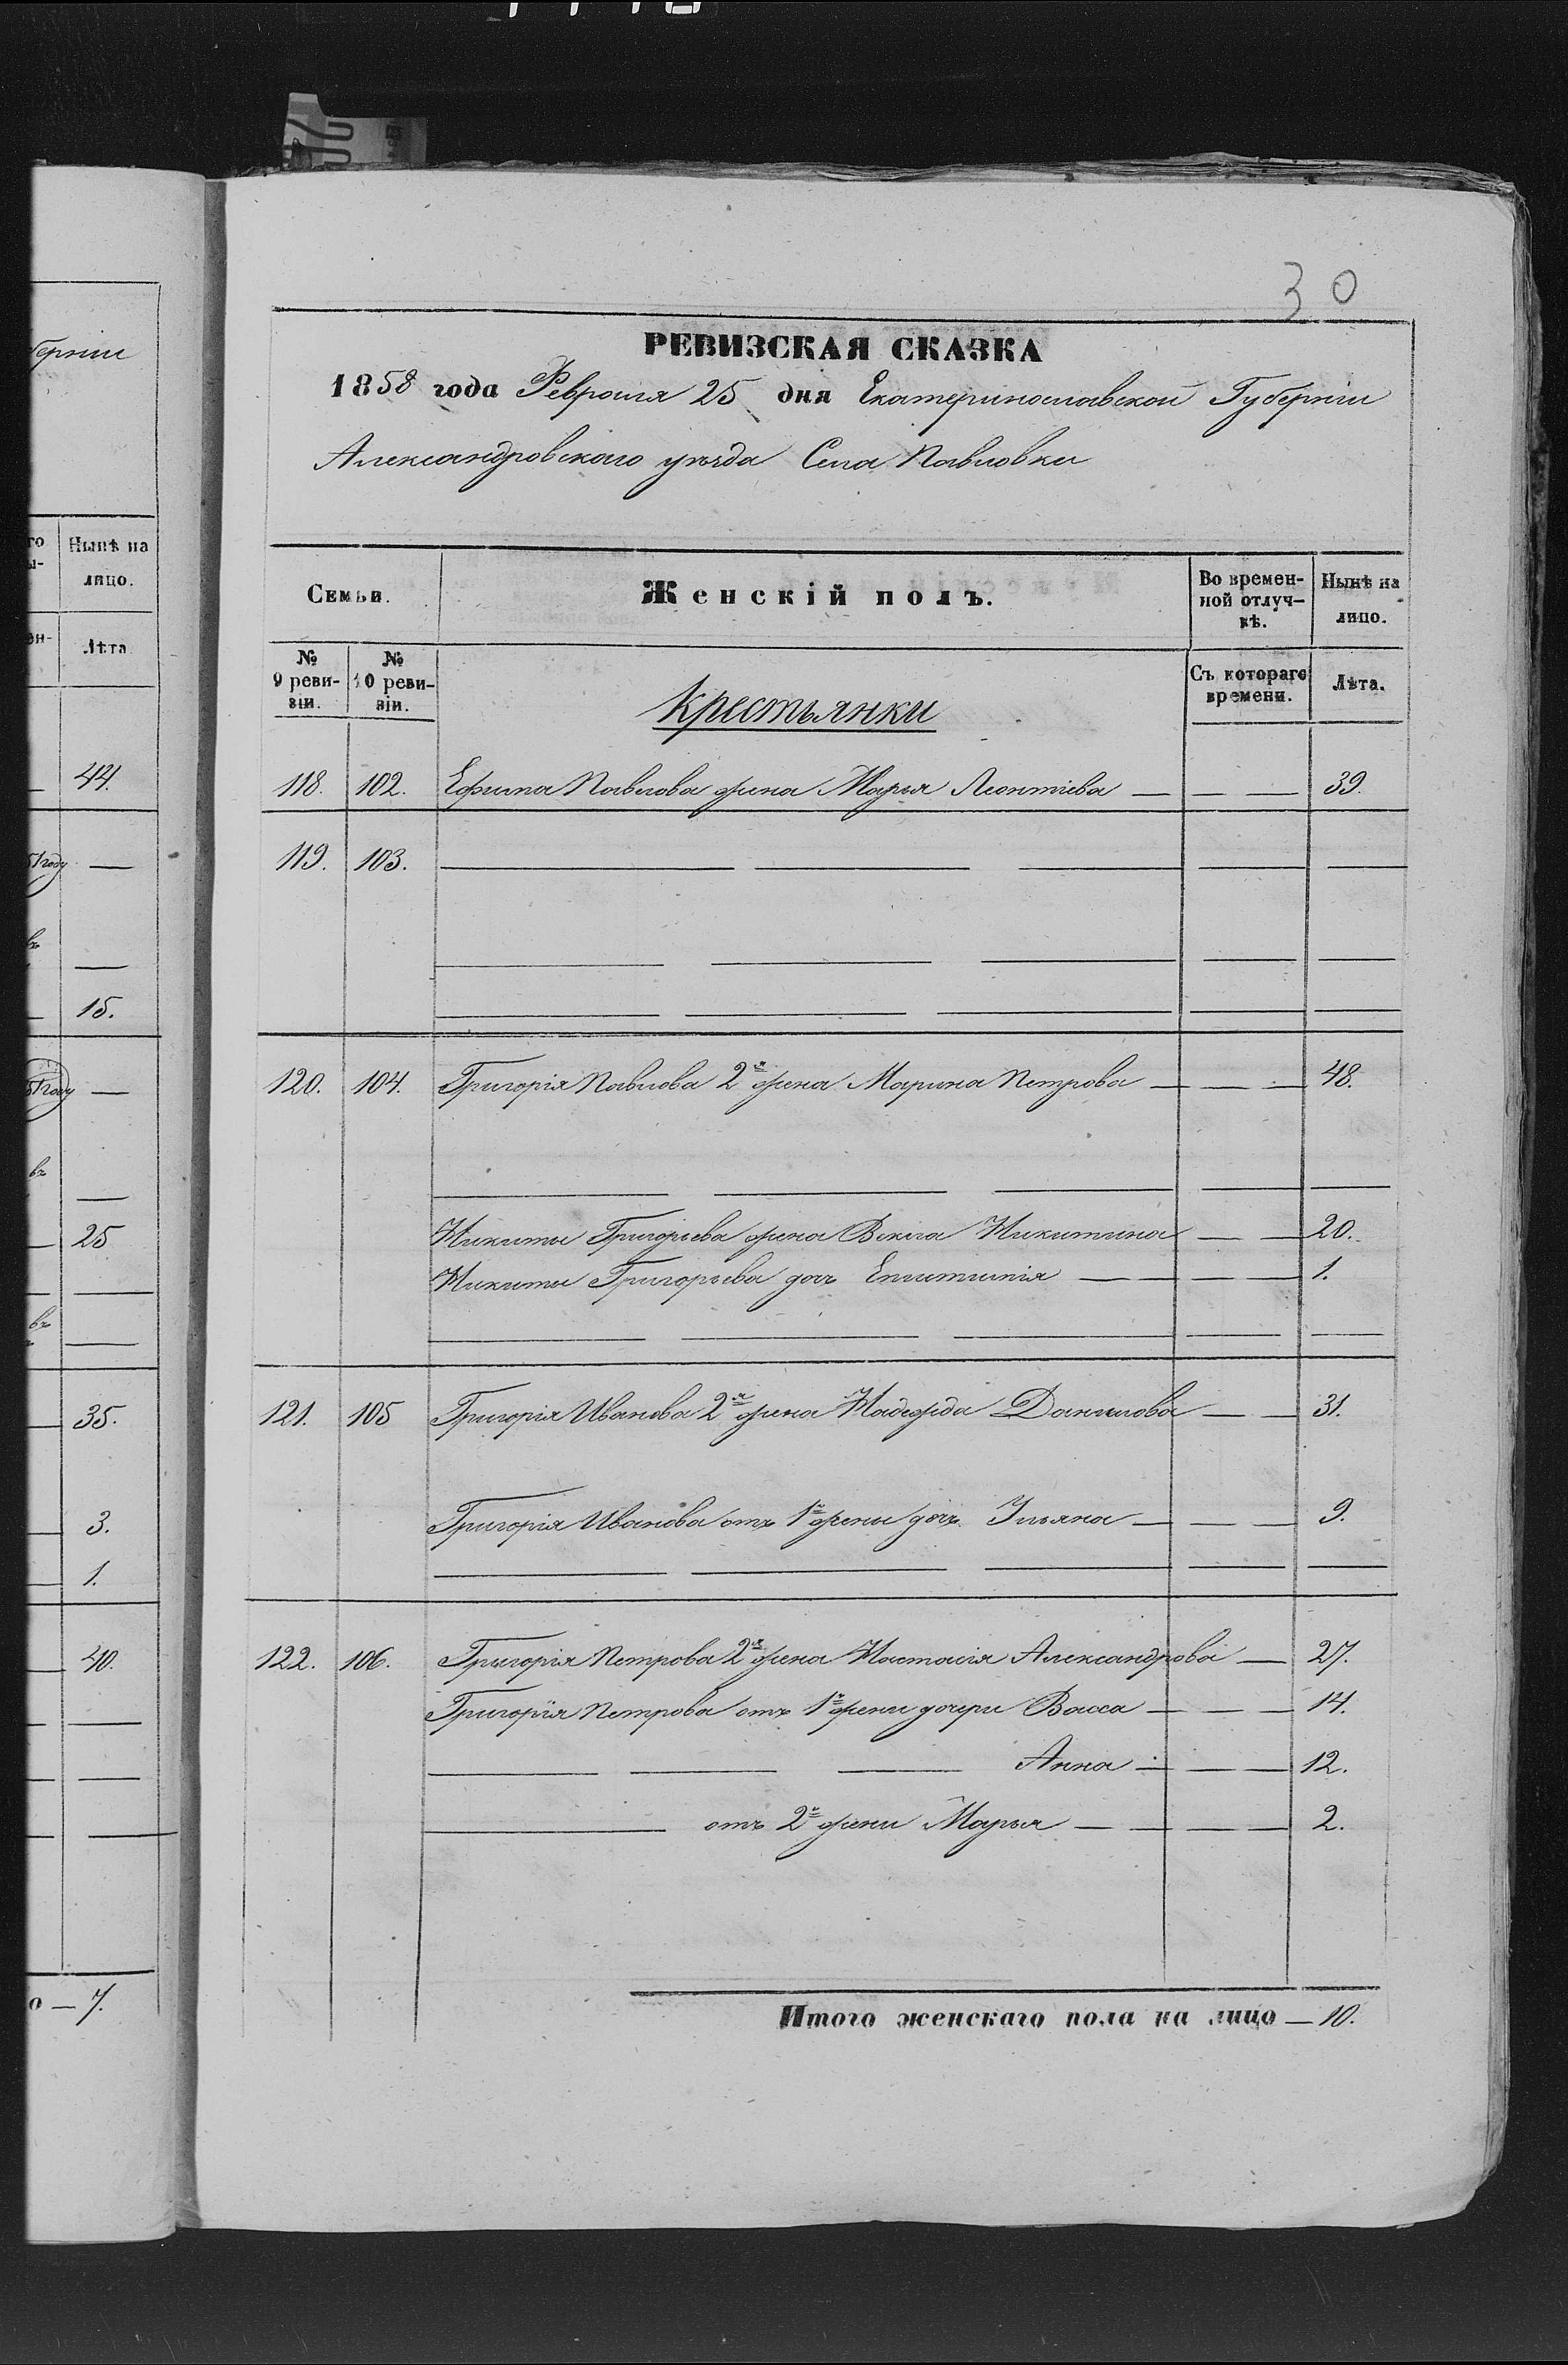 30
РЕВИЗСКАЯ СКАЗКА
1858 года Февраля 25 дня Екатеринославской Губерніи
Александровскаго уѣзда Села Павловки
Семьи. Женскій полъ. Во времен-ной отлуч-кѣ. Нынѣ на лицо.
№ 9 реви-зіи. № 10 реви-зіи. Крестьянки Съ котораго времени. Лѣта.
118. 102. Ефима Павлова жена Марья Леонтіева — — — 39.
119. 103. — — — — —
— — — — —
— — — — —
120. 104. Григорія Павлова 2я жена Марина Петрова — — — 48.
— — — — —
Никиты Григорьева жена Векла Никитина — — 20.
Никиты Григорьева дочь Епистинія — — — — 1.
— — — — —
121. 105 Григорія Иванова 2я жена Надежда Данилова — — 31.
Григорія Иванова отъ 1й жены дочь Ульяна — — — 9.
— — — — —
122. 106. Григорія Петрова 2я жена Настасія Александрова — 27.
Григорія Петрова отъ 1й жены дочери Васса — — — 14.
— — — Анна — — — 12.
— отъ 2й жены Марья — — — — 2.
Итого женскаго пола на лицо — 10.
губерніи
Нынѣ на лицо.
Лѣта
44.
51 году —
въ
—
15.
51 году —
въ
—
25
—
въ
—
35.
3.
1.
40.
—
—
—
о — 7.